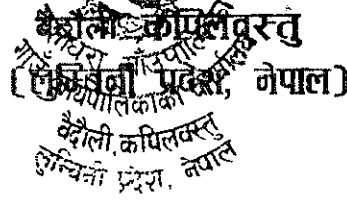 बैदौली, कपिलवस्तु
(लुम्बिनी प्रदेश, नेपाल)
गाउँपालिका
गाउँ कार्यपालिकाको कार्यालय
बैदौली, कपिलवस्तु
लुम्बिनी प्रदेश, नेपाल